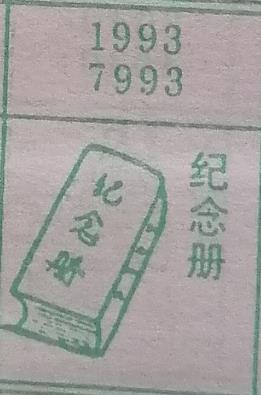 1993
7993
纪念册
纪念册